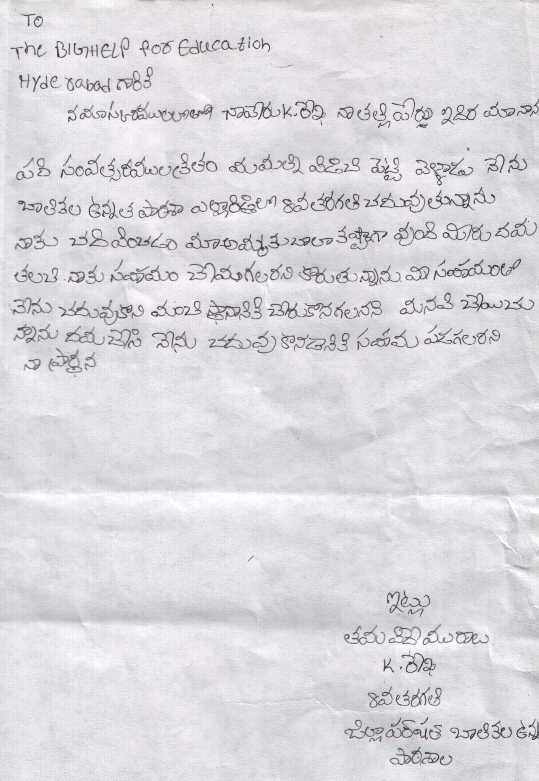 TO
The BIGHELP for Education
Hyderabad గారికి
నమాస్కారములులతో నాపేరు K. నా తల్లి పేర్లు ఇందిర మా నాన
పది సంవత్సరముల క్రితం మమల్ని విడిచి పెట్టి వెళ్ళాడు నేను
బాలికల ఉన్నత పాఠశా ఎల్లారెడ్డిలో 8వ తరగతి చదువుతున్నాను
నాకు చదివించడం మా అమ్మకు చాలా కష్టంగా వుంది మీరు దయ
తలచి నాకు సహాయం చేయగలరని కోరుతున్నాను మీ సహాయంతో
నేను చదువుకొని మంచి స్థానానికి చేరుకొనగలనని మనవి చేయుచు
న్నాను దయచేసి నేను చదువుకొనడానికి సహాయ పడగలరని
నా ప్రార్థన
ఇట్లు
తమ విదేయురాలు
K.
8వ తరగతి
జిల్లా పరిషత్ బాలికల ఉన్న
పాఠశాల